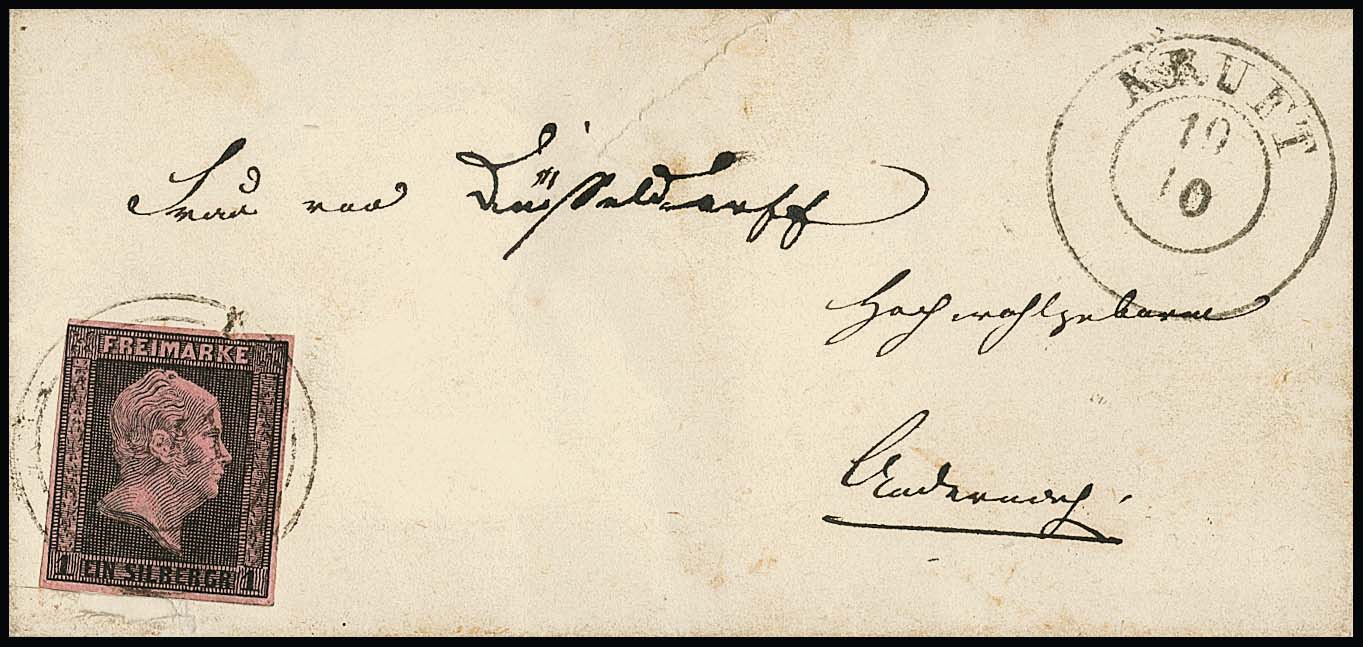 KRUFT
19
10
Frau von Düsseldorff
Hochwohlgeboren
Andernach.
FREIMARKE
1 EIN SILBERGR 1